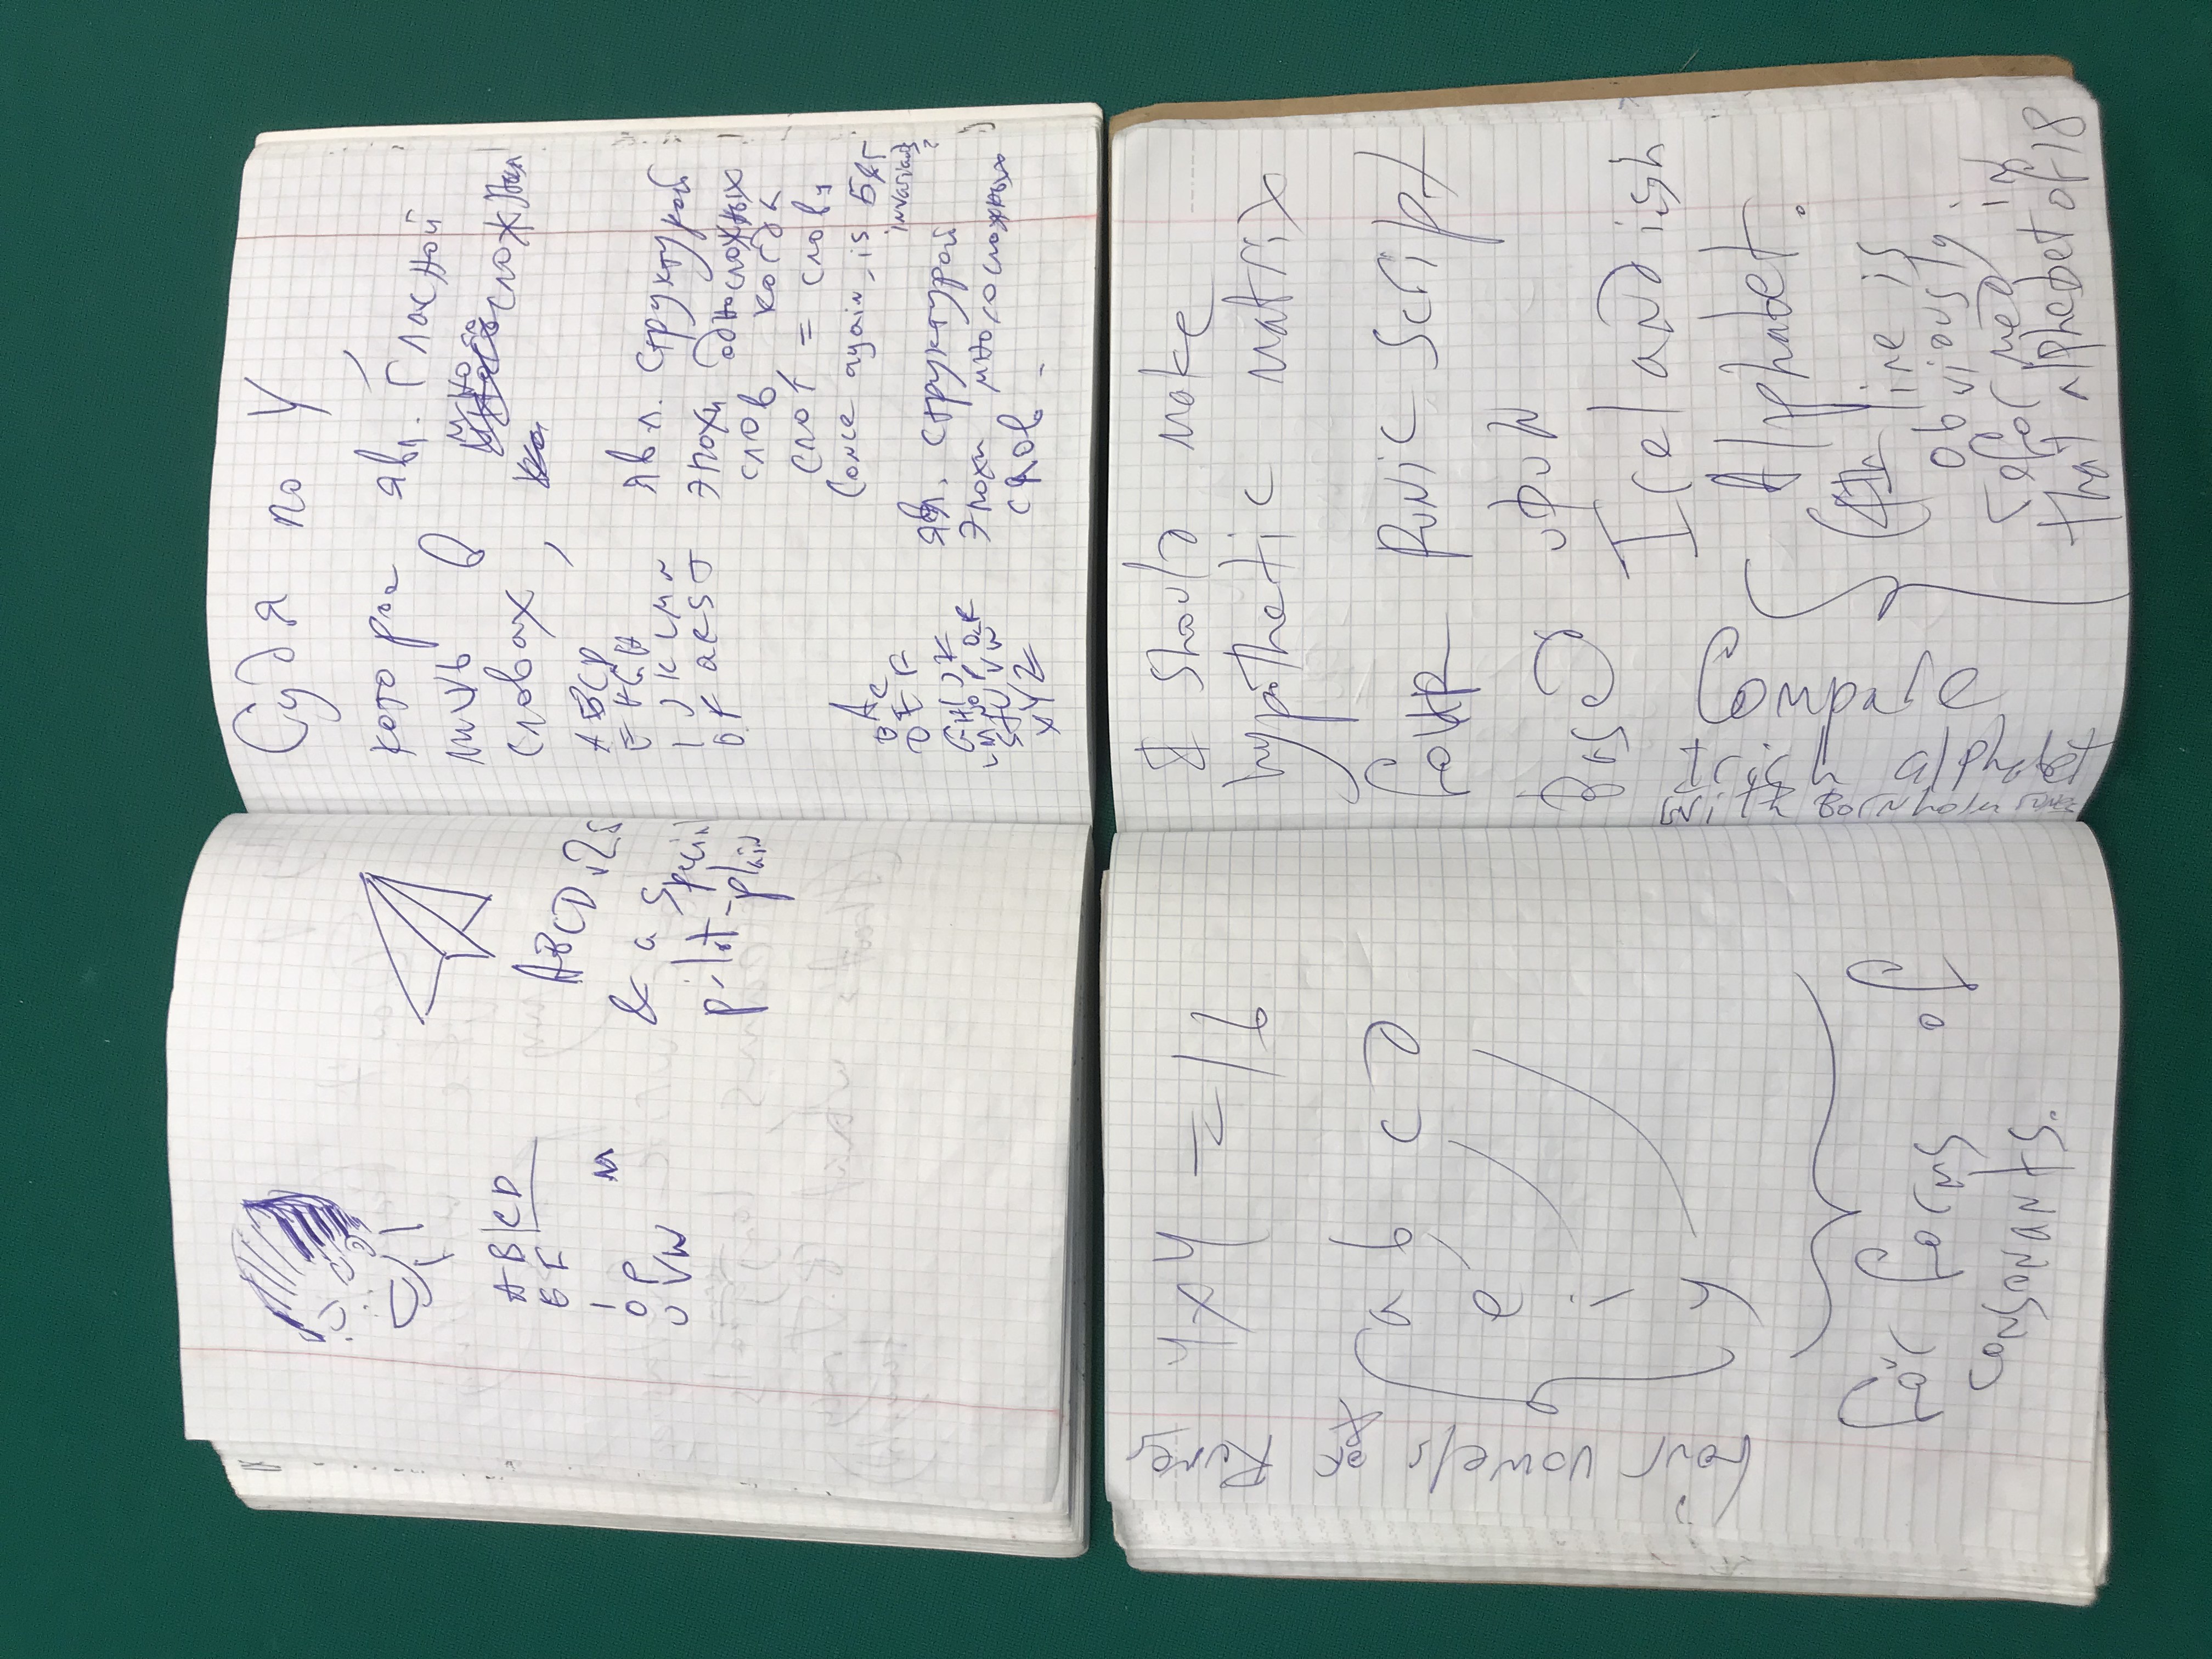 AB|CD
E F
I M
O P
U VW
ABCD
& a special
pilot-plain
Судя по Y
которая явл. гласной
лишь в многосложных
словах,
ABCD
EFGH
I J K L M N
явл. структурой
эпохи односложных
слов, когда
слог = слову
(once again, is
invariant?
A
B C
D E F
G H I J K
L M N O P Q R
S T U V W
X Y Z
явл. структурой
эпохи многосложных
слов.
four vowels of Runes
4x4 = 16
a b c d
e
i
y
for forms of
consonants.
I should make
hypothetic matrix
four Runic script
upon
Icelandish
Alphabet.
(4th line is
obviously
reformed in
that alphabet of 18
Compare
Irish alphabet
with Bornholm runes